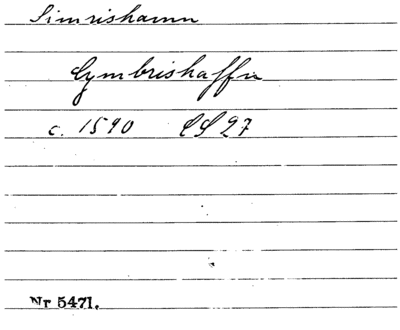 Simrishamn
Cymbrishaffn
c. 1590 SS 27
Nr 5471.